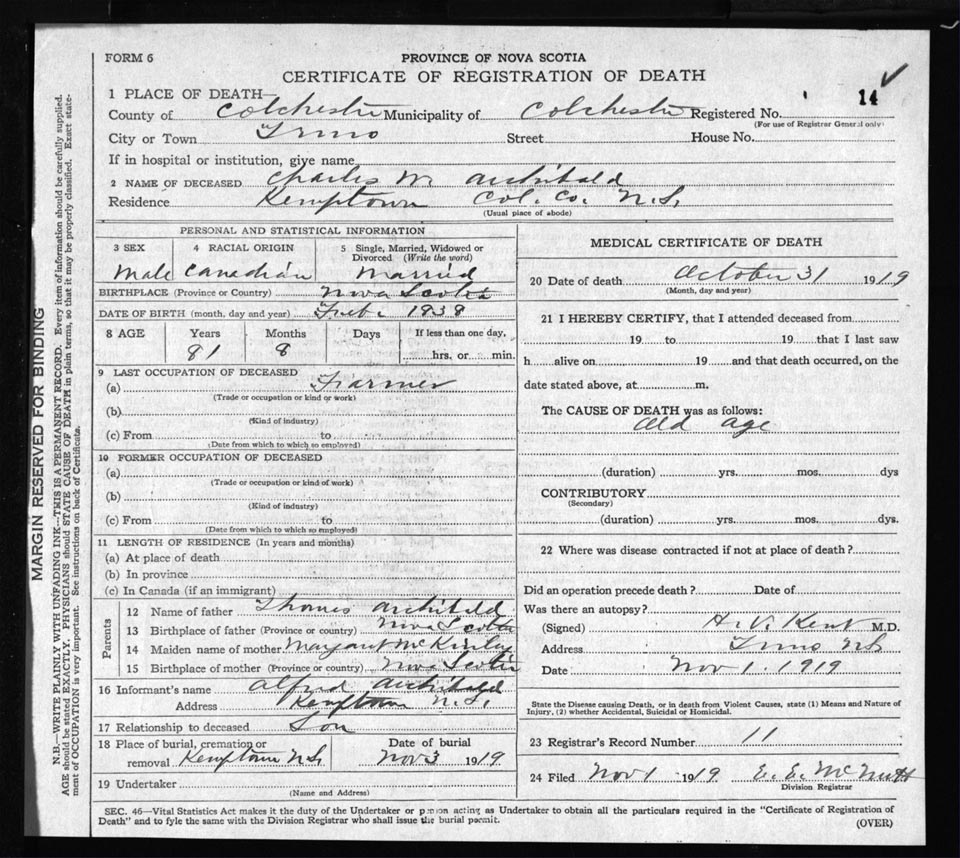 FORM 6
PROVINCE OF NOVA SCOTIA
CERTIFICATE OF REGISTRATION OF DEATH
1 PLACE OF DEATH—
14
County of Colchester Municipality of Colchester Registered No.
(For use of Registrar General only)
City or Town Truro Street House No.
If in hospital or institution, give name
2 NAME OF DECEASED Charles M Archibald
Residence Kemptown Col. Co. N.S.
(Usual place of abode)
PERSONAL AND STATISTICAL INFORMATION
3 SEX 4 RACIAL ORIGIN 5 Single, Married, Widowed or Divorced (Write the word)
Male Canadian Married
BIRTHPLACE (Province or Country) Nova Scotia
DATE OF BIRTH (month, day and year) Feb. 1838
8 AGE Years Months Days If less than one day,
81 8 hrs. or min.
9 LAST OCCUPATION OF DECEASED
(a) Farmer
(Trade or occupation or kind or work)
(b)
(Kind of industry)
(c) From to
(Date from which to which so employed)
10 FORMER OCCUPATION OF DECEASED
(a)
(Trade or occupation or kind of work)
(b)
(Kind of industry)
(c) From to
(Date from which to which so employed)
11 LENGTH OF RESIDENCE (In years and months)
(a) At place of death
(b) In province
(c) In Canada (if an immigrant)
Parents
12 Name of father Thomas Archibald
13 Birthplace of father (Province or country) Nova Scotia
14 Maiden name of mother Margaret McKinlay
15 Birthplace of mother (Province or country) Nova Scotia
16 Informant's name Alfred Archibald
Address Kemptown N.S.
17 Relationship to deceased Son
18 Place of burial, cremation or removal Kemptown N.S. Date of burial Nov 3 1919
19 Undertaker
(Name and Address)
MEDICAL CERTIFICATE OF DEATH
20 Date of death October 31 1919
(Month, day and year)
21 I HEREBY CERTIFY, that I attended deceased from
19 to 19 that I last saw
h alive on 19 and that death occurred, on the
date stated above, at m.
The CAUSE OF DEATH was as follows:
Old age
(duration) yrs. mos. dys
CONTRIBUTORY
(Secondary)
(duration) yrs. mos. dys.
22 Where was disease contracted if not at place of death?
Did an operation precede death? Date of
Was there an autopsy?
(Signed) H. V. Kent M.D.
Address Truro NS
Date Nov 1 1919
State the Disease causing Death, or in death from Violent Causes, state (1) Means and Nature of
Injury, (2) whether Accidental, Suicidal or Homicidal.
23 Registrar's Record Number 11
24 Filed Nov 1 1919 E. E. McNutt
Division Registrar
SEC. 46—Vital Statistics Act makes it the duty of the Undertaker or person acting as Undertaker to obtain all the particulars required in the "Certificate of Registration of
Death" and to fyle the same with the Division Registrar who shall issue the burial permit.
(OVER)
MARGIN RESERVED FOR BINDING
N.B.—WRITE PLAINLY WITH UNFADING INK—THIS IS A PERMANENT RECORD. Every item of information should be carefully supplied.
AGE should be stated EXACTLY. PHYSICIANS should STATE CAUSE OF DEATH in plain terms, so that it may be properly classified. Exact state-
ment of OCCUPATION is very important. See instructions on back of Certificate.